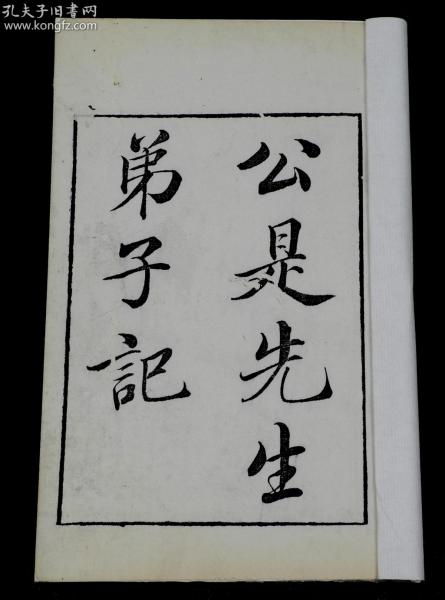 孔夫子旧书网
www.kongfz.com
公是先生
弟子記